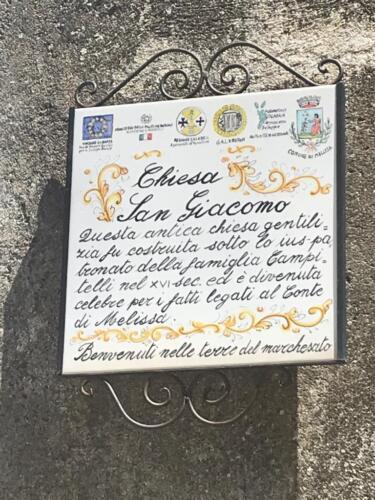 REGIONE CALABRIA
G.A.L.
COMUNE DI MELISSA
Chiesa
San Giacomo
Questa antica chiesa gentili-
zia fu costruita sotto lo ius-pa-
tronato della famiglia Campi-
telli nel XVI sec. ed è divenuta
celebre per i fatti legati al Conte
di Melissa.
Benvenuti nelle terre del marchesato